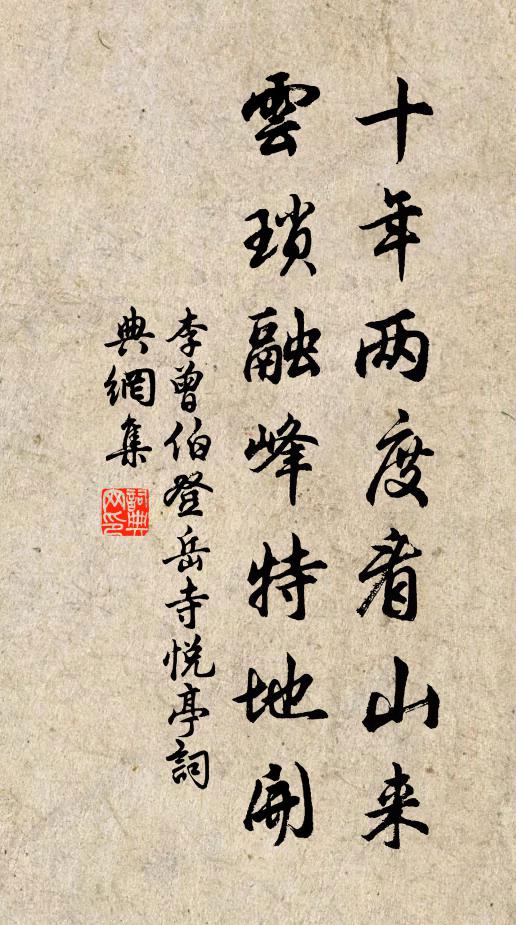 十年两度看山来
雲瑣融峰特地開
李曾伯登岳寺悦亭詞
典網集
詞典網印